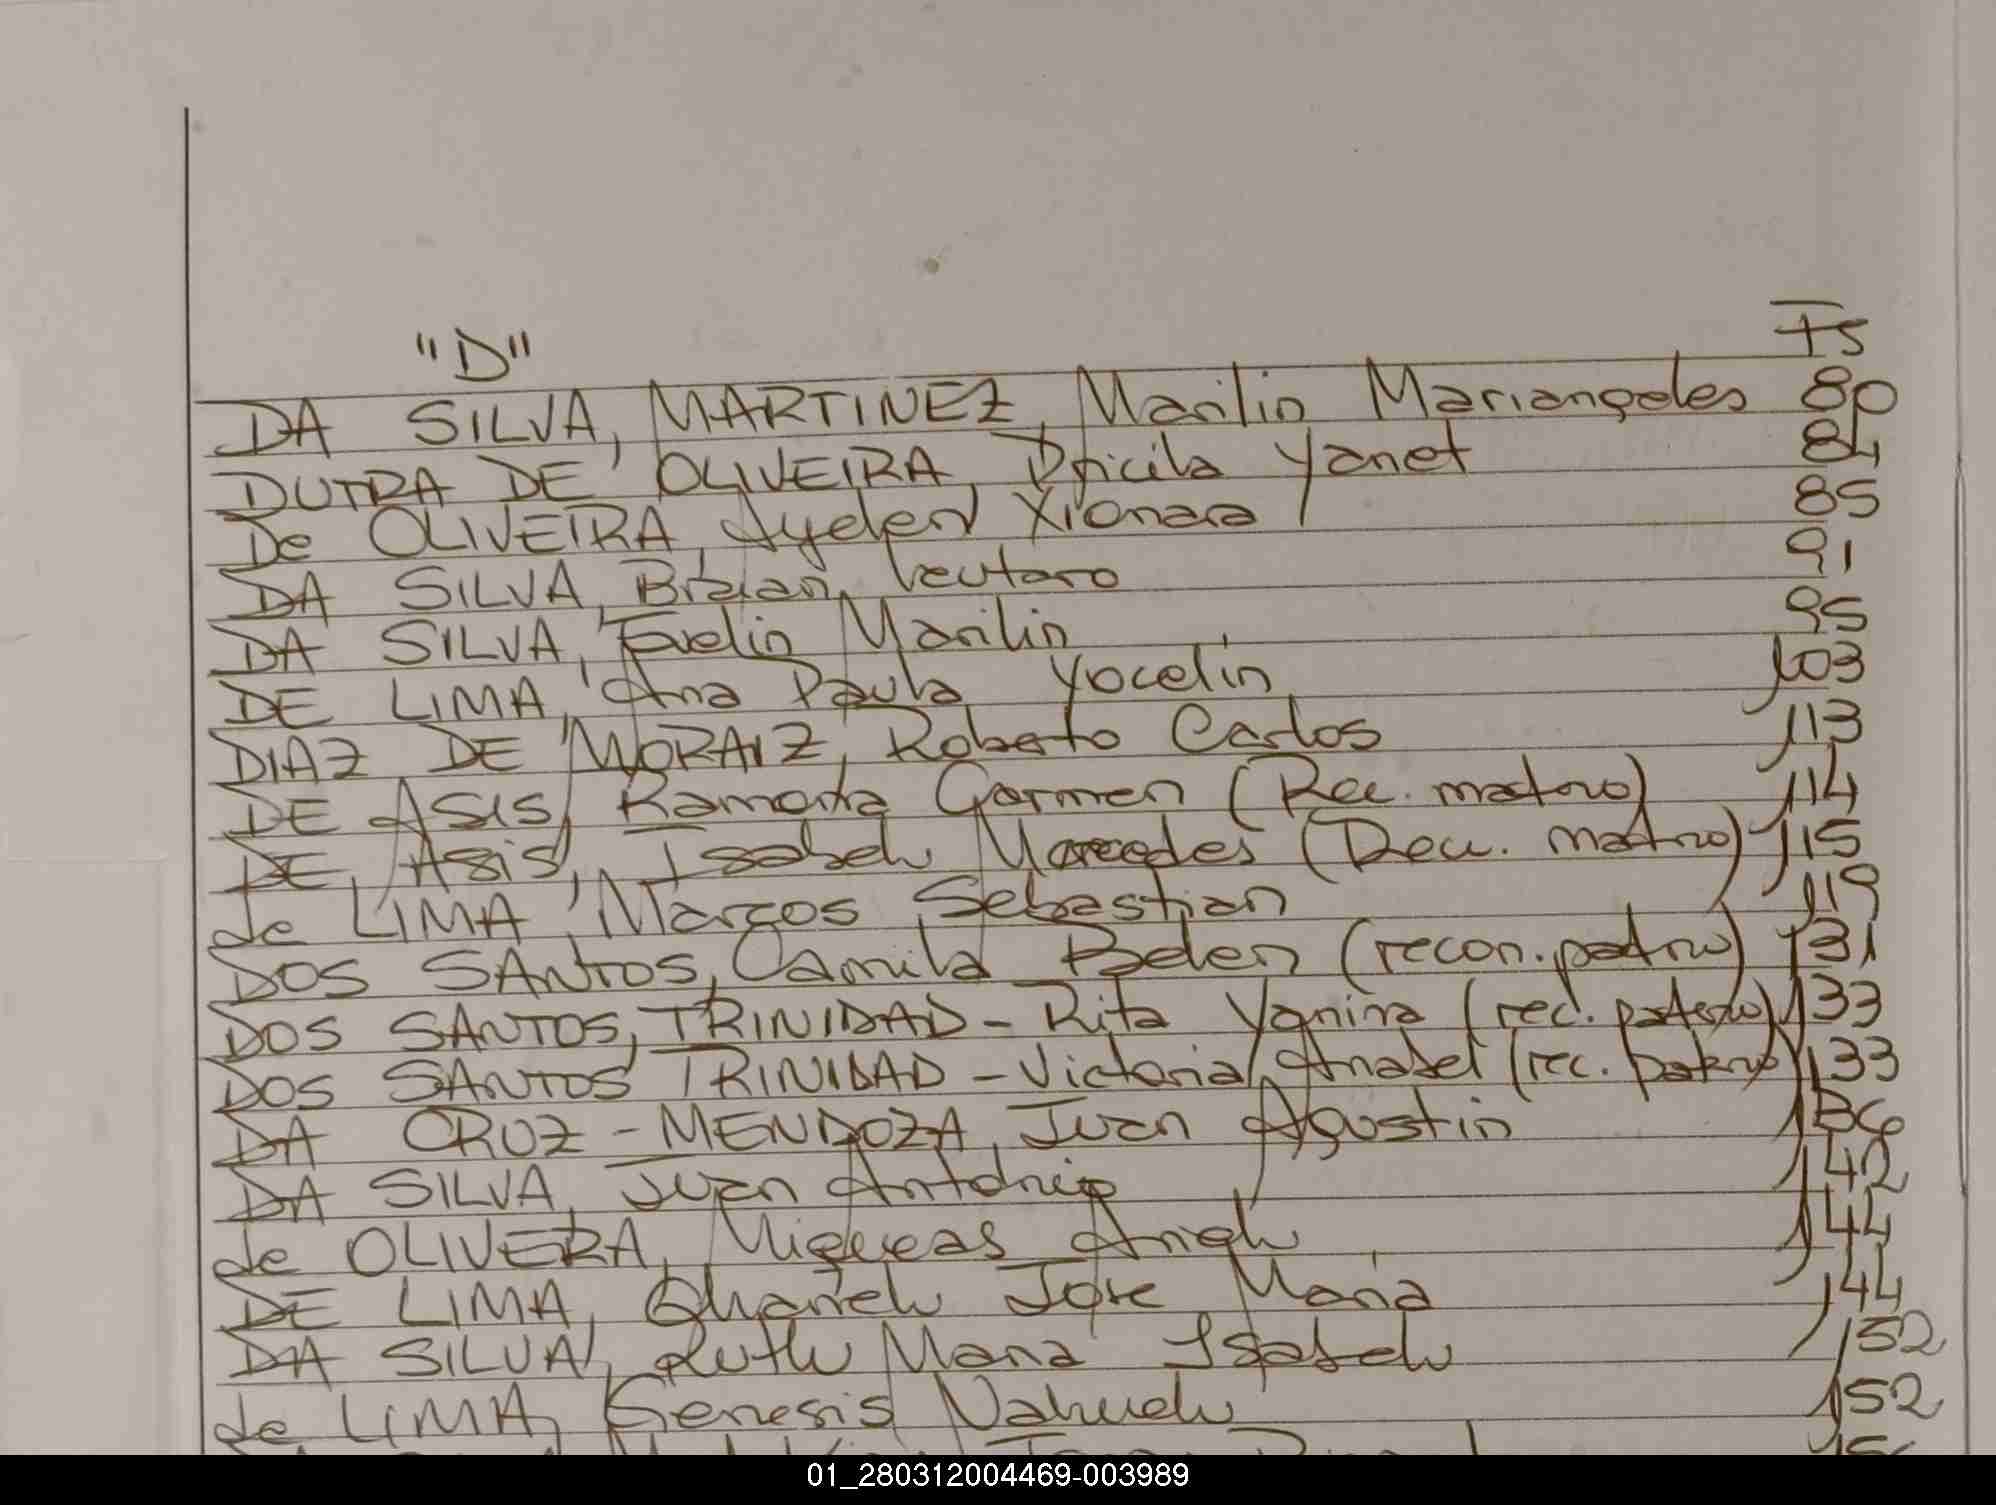 "D" Fs
DA SILVA, MARTINEZ, Marilin Mariangeles 80
DUTRA DE OLIVEIRA, Yanet 84
De OLIVEIRA, Ayelen Xionara 85
DA SILVA, Braian Leutaro 91
DA SILVA, Evelin Marilin 95
DE LIMA, Ana Paula Yocelin 103
DIAZ DE MORAIZ, Roberto Carlos 113
DE ASIS, Ramonita Carmen (Rec. materno) 114
DE ASIS, Isabel Mercedes (Rec. materno) 115
de LIMA, Marcos Sebastian 119
DOS SANTOS, Camila Belen (recon. paterno) 131
DOS SANTOS, TRINIDAD - Rita Yanina (rec. paterno) 133
DOS SANTOS TRINIDAD - Victoria Anabel (rec. paterno) 133
DA CRUZ - MENDOZA, Juan Agustin 136
DA SILVA, Juan Antonio 142
de OLIVERA, Miqueas Ariel 144
DE LIMA, José María 144
DA SILVA, Ruth Maria Isabel 152
de LIMA, Genesis Nahuel 152
01_280312004469-003989